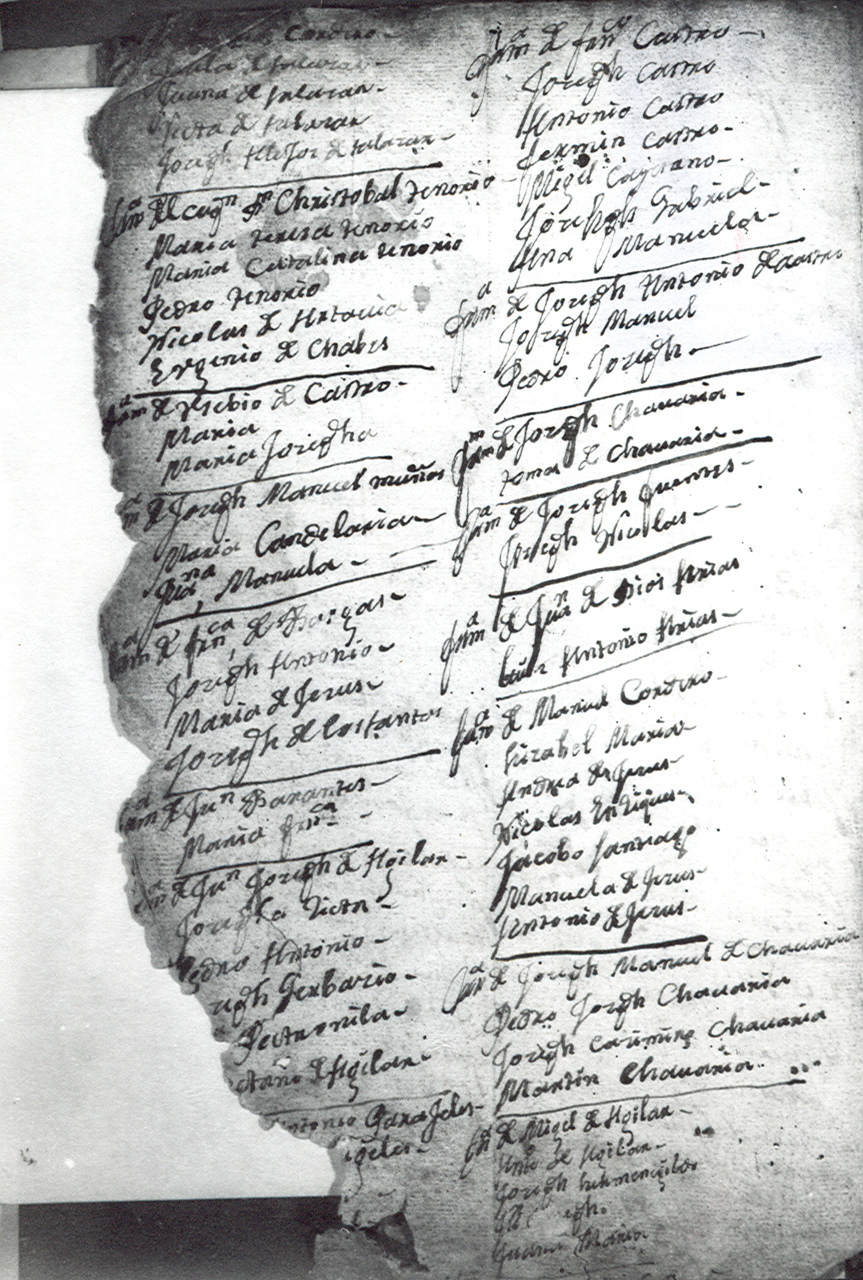 Cordero
Paula de salazar
Juana de salazar
de salazar
Joseph de salazar
fam.ª del cap.n Dn Christobal tenorio
Maria teresa tenorio
Maria Catalina tenorio
Pedro tenorio
Nicolas de
Evgenio de Chabes
fam.ª de Vsebio de Castro
Maria
Maria Josepha
de Joseph Manuel muños
Maria Candelaria
Juana Manuela
fam.ª de fran.ca de Bargas
Joseph Antonio
Maria de Jesus
Joseph de los santos
fam.ª de Ju.n Barantes
Maria fran.ca
de Ju.n Joseph de Agilar
Josepha
Pedro Antonio
seph Gerbacio
Petronila
de Agilar
ntonio
geles
fam.ª de fran.co Castro
Joseph Castro
Antonio Castro
Fermin Castro
Migel Cayetano
Joseph Gabriel
Ana Manuela
fam.ª de Joseph Antonio de castro
Joseph Manuel
Pedro Joseph
fam.ª de Joseph Chavaria
toma de Chavaria
fam.ª de Joseph fuentes
Joseph Nicolas
fam.ª de Jua.n de Dios Arias
Luis Antonio Arias
fam.ª de Manuel Cordero
Ysabel Maria
Andrea de Jesus
Nicolas Enriques
Jacobo santiago
Manuela de Jesus
Antonio de Jesus
fam.ª de Joseph Manuel de Chavaria
Pedro Joseph Chavaria
Joseph Casimiro Chavaria
Martin Chavaria
de Migel de Agilar
de Agilar
Joseph
Juana Maria